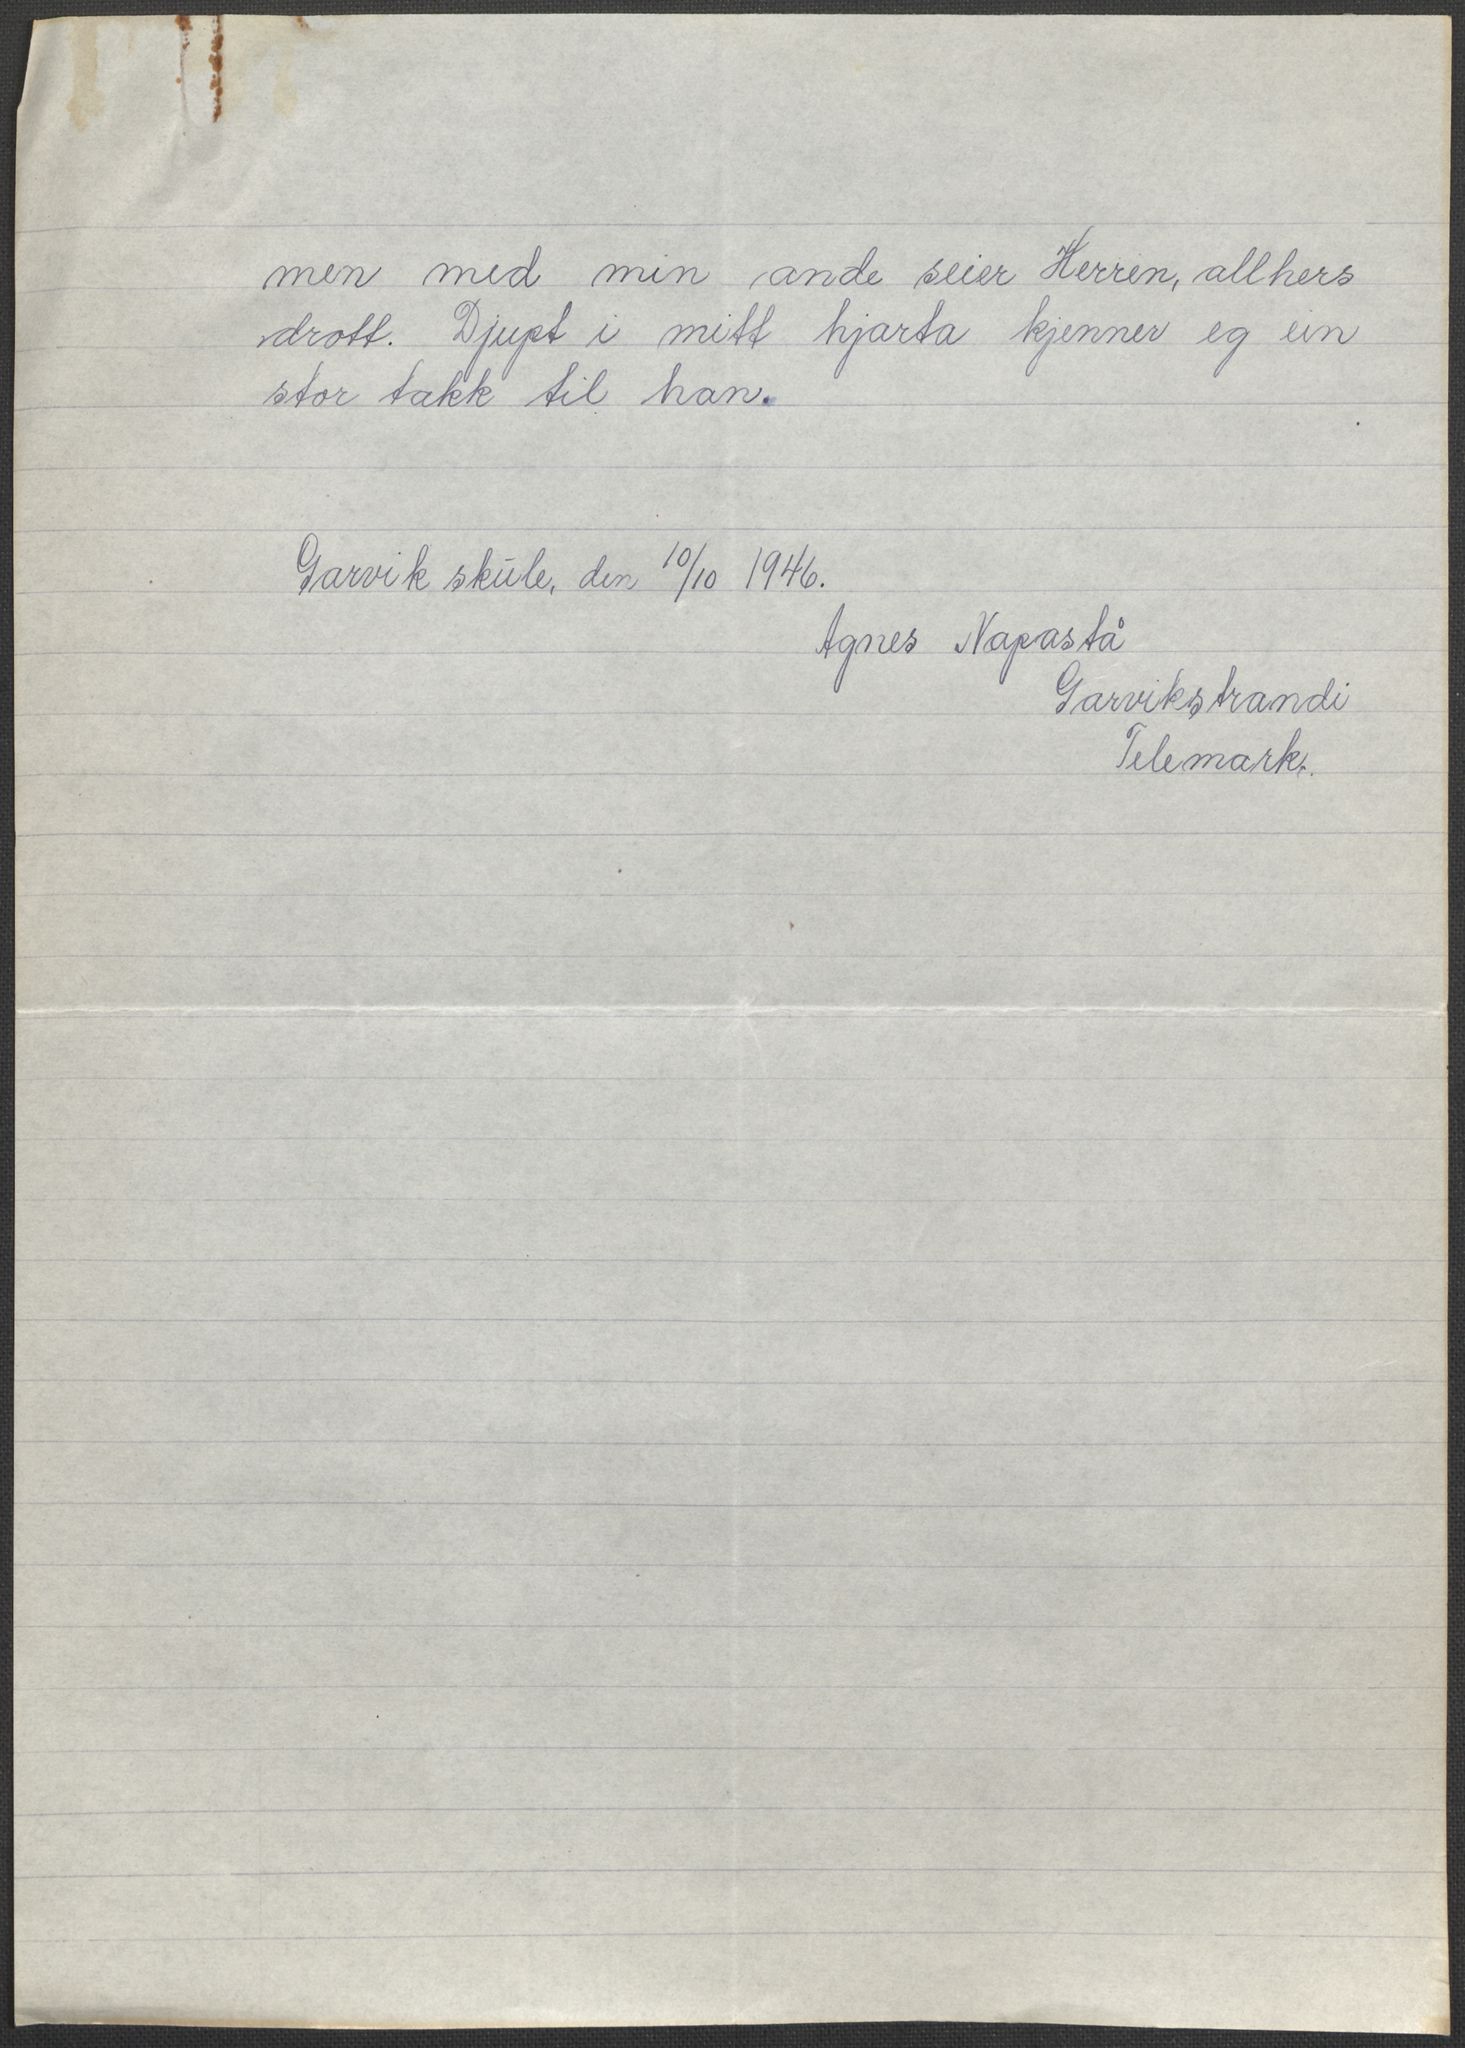 men med min ande seier Herren, allhers
drott. Djupt i mitt hjarta kjenner eg ein
stor takk til han.
Garvik skule, den 10/10 1946.
Agnes Napastå
Garvikstrandi
Telemark.